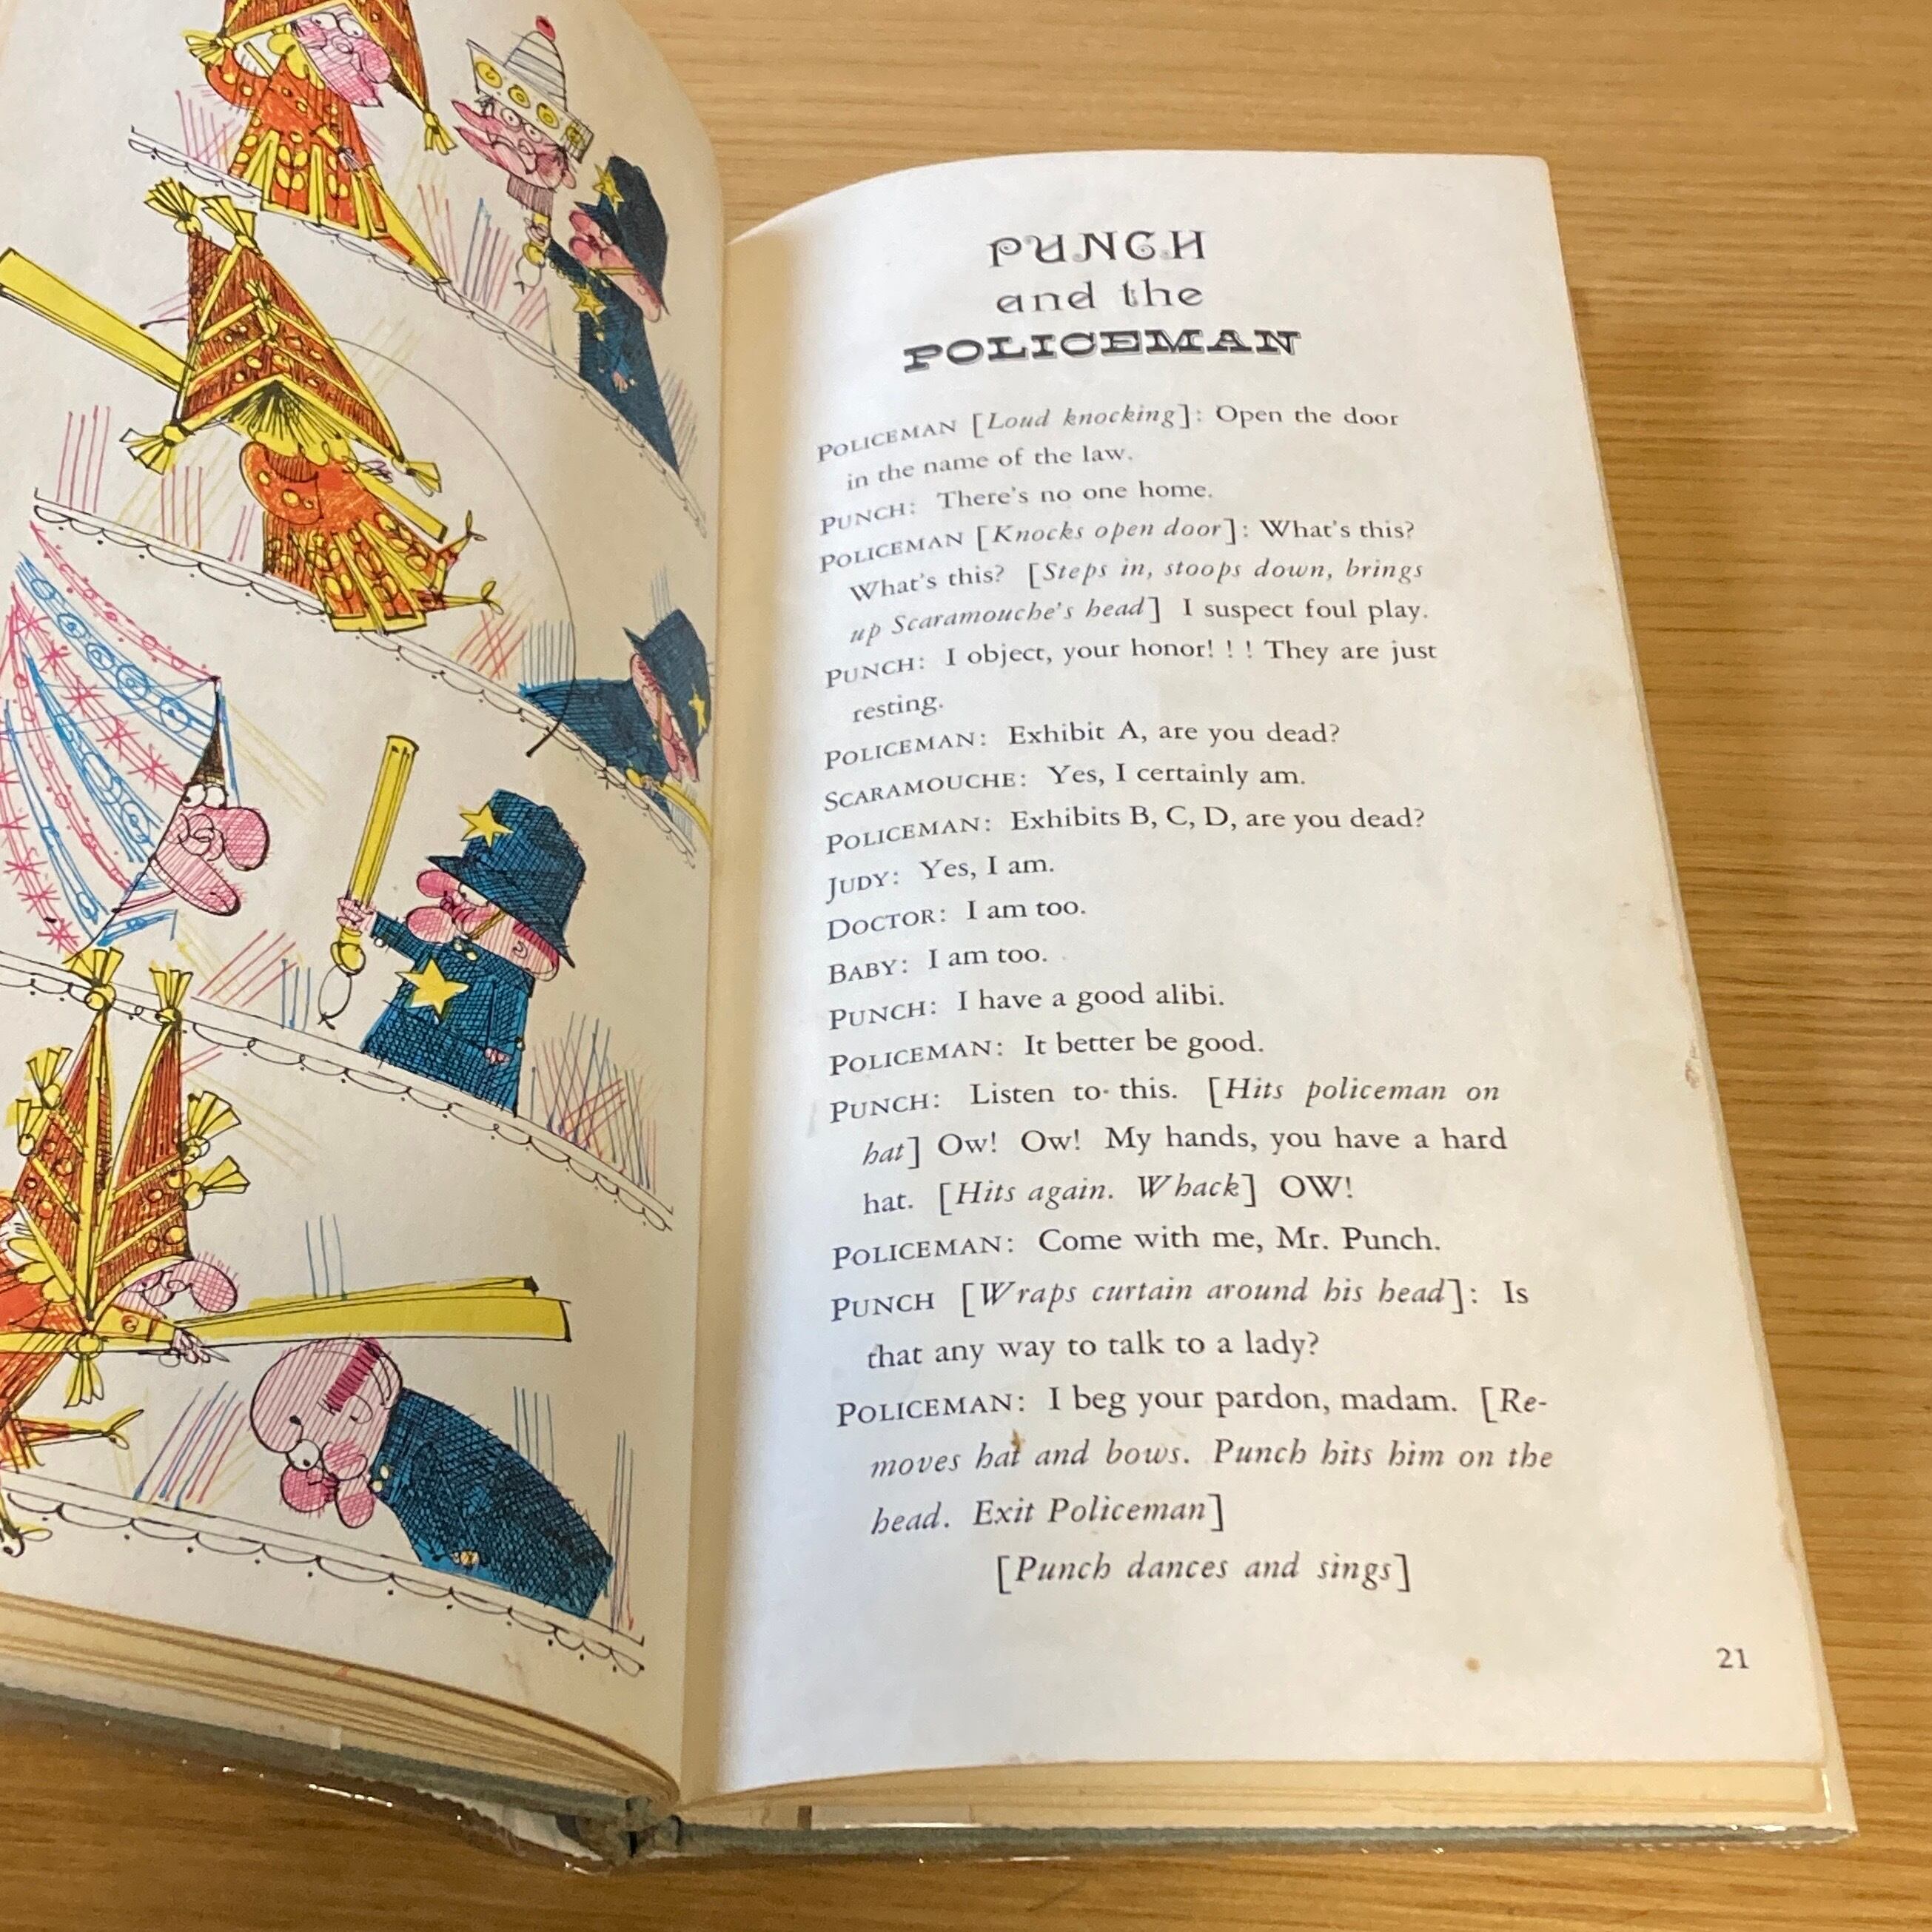 PUNCH
and the
POLICEMAN
POLICEMAN [Loud knocking]: Open the door
in the name of the law.
PUNCH: There's no one home.
POLICEMAN [Knocks open door]: What's this?
What's this? [Steps in, stoops down, brings
up Scaramouche's head] I suspect foul play.
PUNCH: I object, your honor! ! ! They are just
resting.
POLICEMAN: Exhibit A, are you dead?
SCARAMOUCHE: Yes, I certainly am.
POLICEMAN: Exhibits B, C, D, are you dead?
JUDY: Yes, I am.
DOCTOR: I am too.
BABY: I am too.
PUNCH: I have a good alibi.
POLICEMAN: It better be good.
PUNCH: Listen to this. [Hits policeman on
hat] Ow! Ow! My hands, you have a hard
hat. [Hits again. Whack] OW!
POLICEMAN: Come with me, Mr. Punch.
PUNCH [Wraps curtain around his head]: Is
that any way to talk to a lady?
POLICEMAN: I beg your pardon, madam. [Re-
moves hat and bows. Punch hits him on the
head. Exit Policeman]
[Punch dances and sings]
21